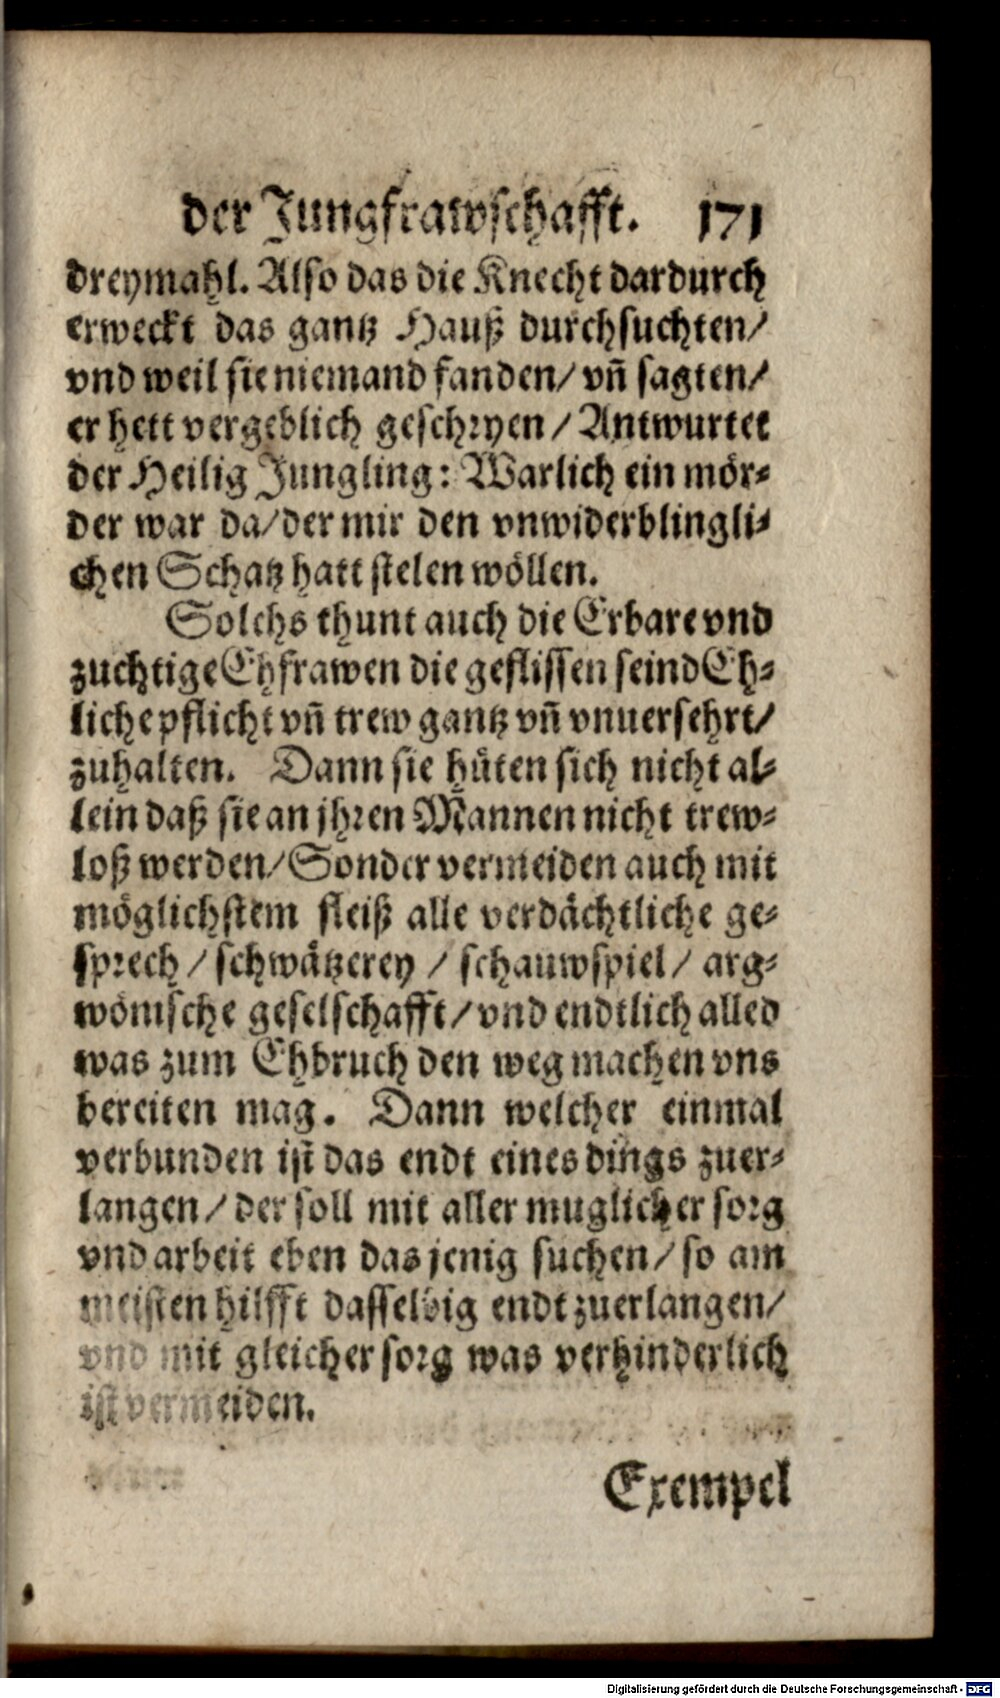 der Jungfrawschafft. 171
dreymahl. Also das die Knecht dardurch
erweckt das gantz Hauß durchsuchten/
vnd weil sie niemand fanden/ vñ sagten/
er hett vergeblich geschryen / Antwurtet
der Heilig Jungling: Warlich ein mör⸗
der war da/ der mir den vnwiderblingli⸗
chen Schatz hatt stelen wöllen.
Solchs thunt auch die Erbare vnd
zuchtige Ehfrawen die geflissen seind Eh⸗
liche pflicht vñ trew gantz vñ vnuersehrt/
zuhalten. Dann sie hüten sich nicht al⸗
lein daß sie an jhren Mannen nicht trew⸗
loß werden/ Sonder vermeiden auch mit
möglichstem fleiß alle verdächtliche ge⸗
sprech / schwätzerey / schauwspiel/ arg⸗
wönische geselschafft/ vnd endtlich alled
was zum Ehbruch den weg machen vns
bereiten mag. Dann welcher einmal
verbunden ist das endt eines dings zuer⸗
langen/ der soll mit aller muglicher sorg
vnd arbeit eben das jenig suchen/ so am
meisten hilfft dasselbig endt zuerlangen/
vnd mit gleicher sorg was verhinderlich
ist vermeiden.
Exempel
Digitalisierung gefördert durch die Deutsche Forschungsgemeinschaft - DFG